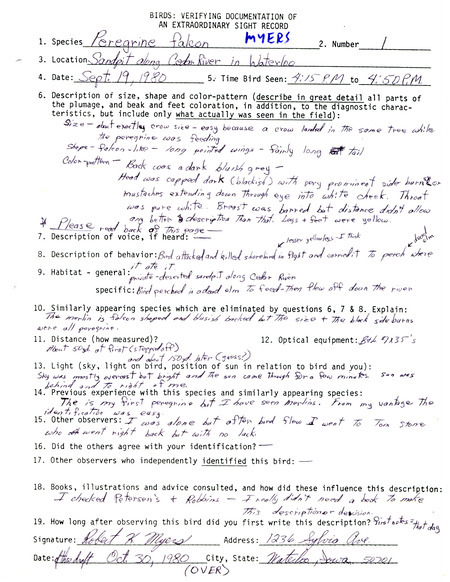 BIRDS: VERIFYING DOCUMENTATION OF
AN EXTRAORDINARY SIGHT RECORD
MYERS
1. Species Peregrine falcon 2. Number 1
3. Location Sandpit along Cedar River in Waterloo
4. Date: Sept. 19, 1980 5. Time Bird Seen: 4:15 PM to 4:50 PM
6. Description of size, shape and color-pattern (describe in great detail all parts of
the plumage, and beak and feet coloration, in addition, to the diagnostic charac-
teristics, but include only what actually was seen in the field):
Size - about exactly crow size - easy because a crow landed in the same tree while
the peregrine was feeding
Shape - falcon-like - long pointed wings - fairly long tail
Color-pattern - Back was a dark bluish grey -
Head was capped dark (blackish) with very prominent sider burns or
mustaches extending down through eye into white cheek. Throat
was pure white. Breast was barred but distance didn't allow
any better description than that. Legs + feet were yellow.
* Please read back of this page -
7. Description of voice, if heard: —
lesser yellowlegs - I think
8. Description of behavior: Bird attacked and killed shorebird in flight and carried it to perch where
it ate it
9. Habitat - general: private-deserted sandpit along Cedar River
specific: Bird perched in a dead elm to feed - then flew off down the river
10. Similarly appearing species which are eliminated by questions 6, 7 & 8. Explain:
The merlin is falcon shaped and bluish backed but the size + the black side burns
were all peregrine.
11. Distance (how measured)? 12. Optical equipment: B+L 7x35's
About 50yd at first (stepped off)
and about 150yd later (guess!)
13. Light (sky, light on bird, position of sun in relation to bird and you):
Sky was mostly overcast but bright and the sun came through for a few minutes. Sun was
behind and to right of me.
14. Previous experience with this species and similarly appearing species:
This is my first peregrine but I have seen merlins. From my vantage the
identification was easy.
15. Other observers: I was alone but after bird flew I went to Tom Stone
who went right back but with no luck.
16. Did the others agree with your identification? —
17. Other observers who independently identified this bird: —
18. Books, illustrations and advice consulted, and how did these influence this description:
I checked Peterson's + Robbins - I really didn't need a book to make
this description or decision.
19. How long after observing this bird did you first write this description? First notes that day
Signature: Robert K Myers Address: 1236 Sylvia Ave.
Date: Oct 30, 1980 City, State: Waterloo, Iowa 50701
(OVER)